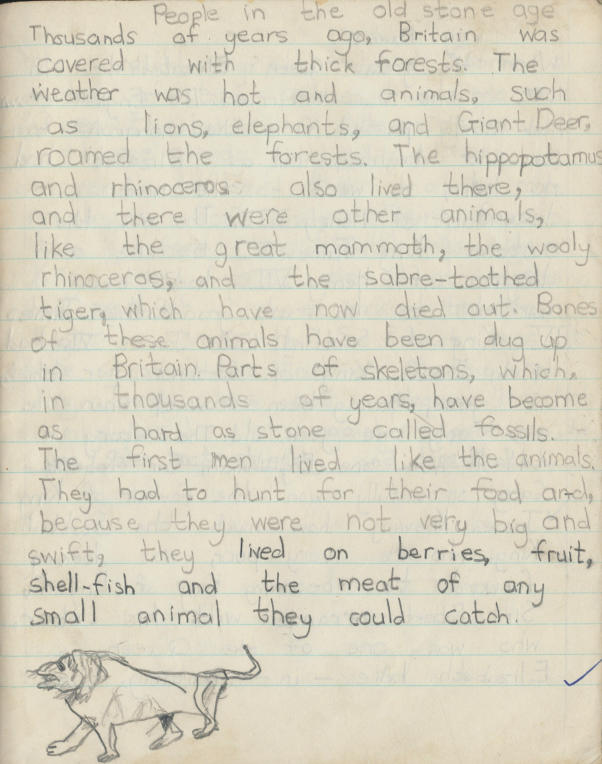 People in the old stone age
Thousands of years ago, Britain was
covered with thick forests. The
weather was hot and animals, such
as lions, elephants, and Giant Deer,
roamed the forests. The hippopotamus
and rhinoceros also lived there,
and there were other animals,
like the great mammoth, the wooly
rhinoceros, and the sabre-toothed
tiger, which have now died out. Bones
of these animals have been dug up
in Britain. Parts of skeletons, which,
in thousands of years, have become
as hard as stone called fossils.
The first men lived like the animals.
They had to hunt for their food and,
because they were not very big and
swift, they lived on berries, fruit,
shell-fish and the meat of any
small animal they could catch.